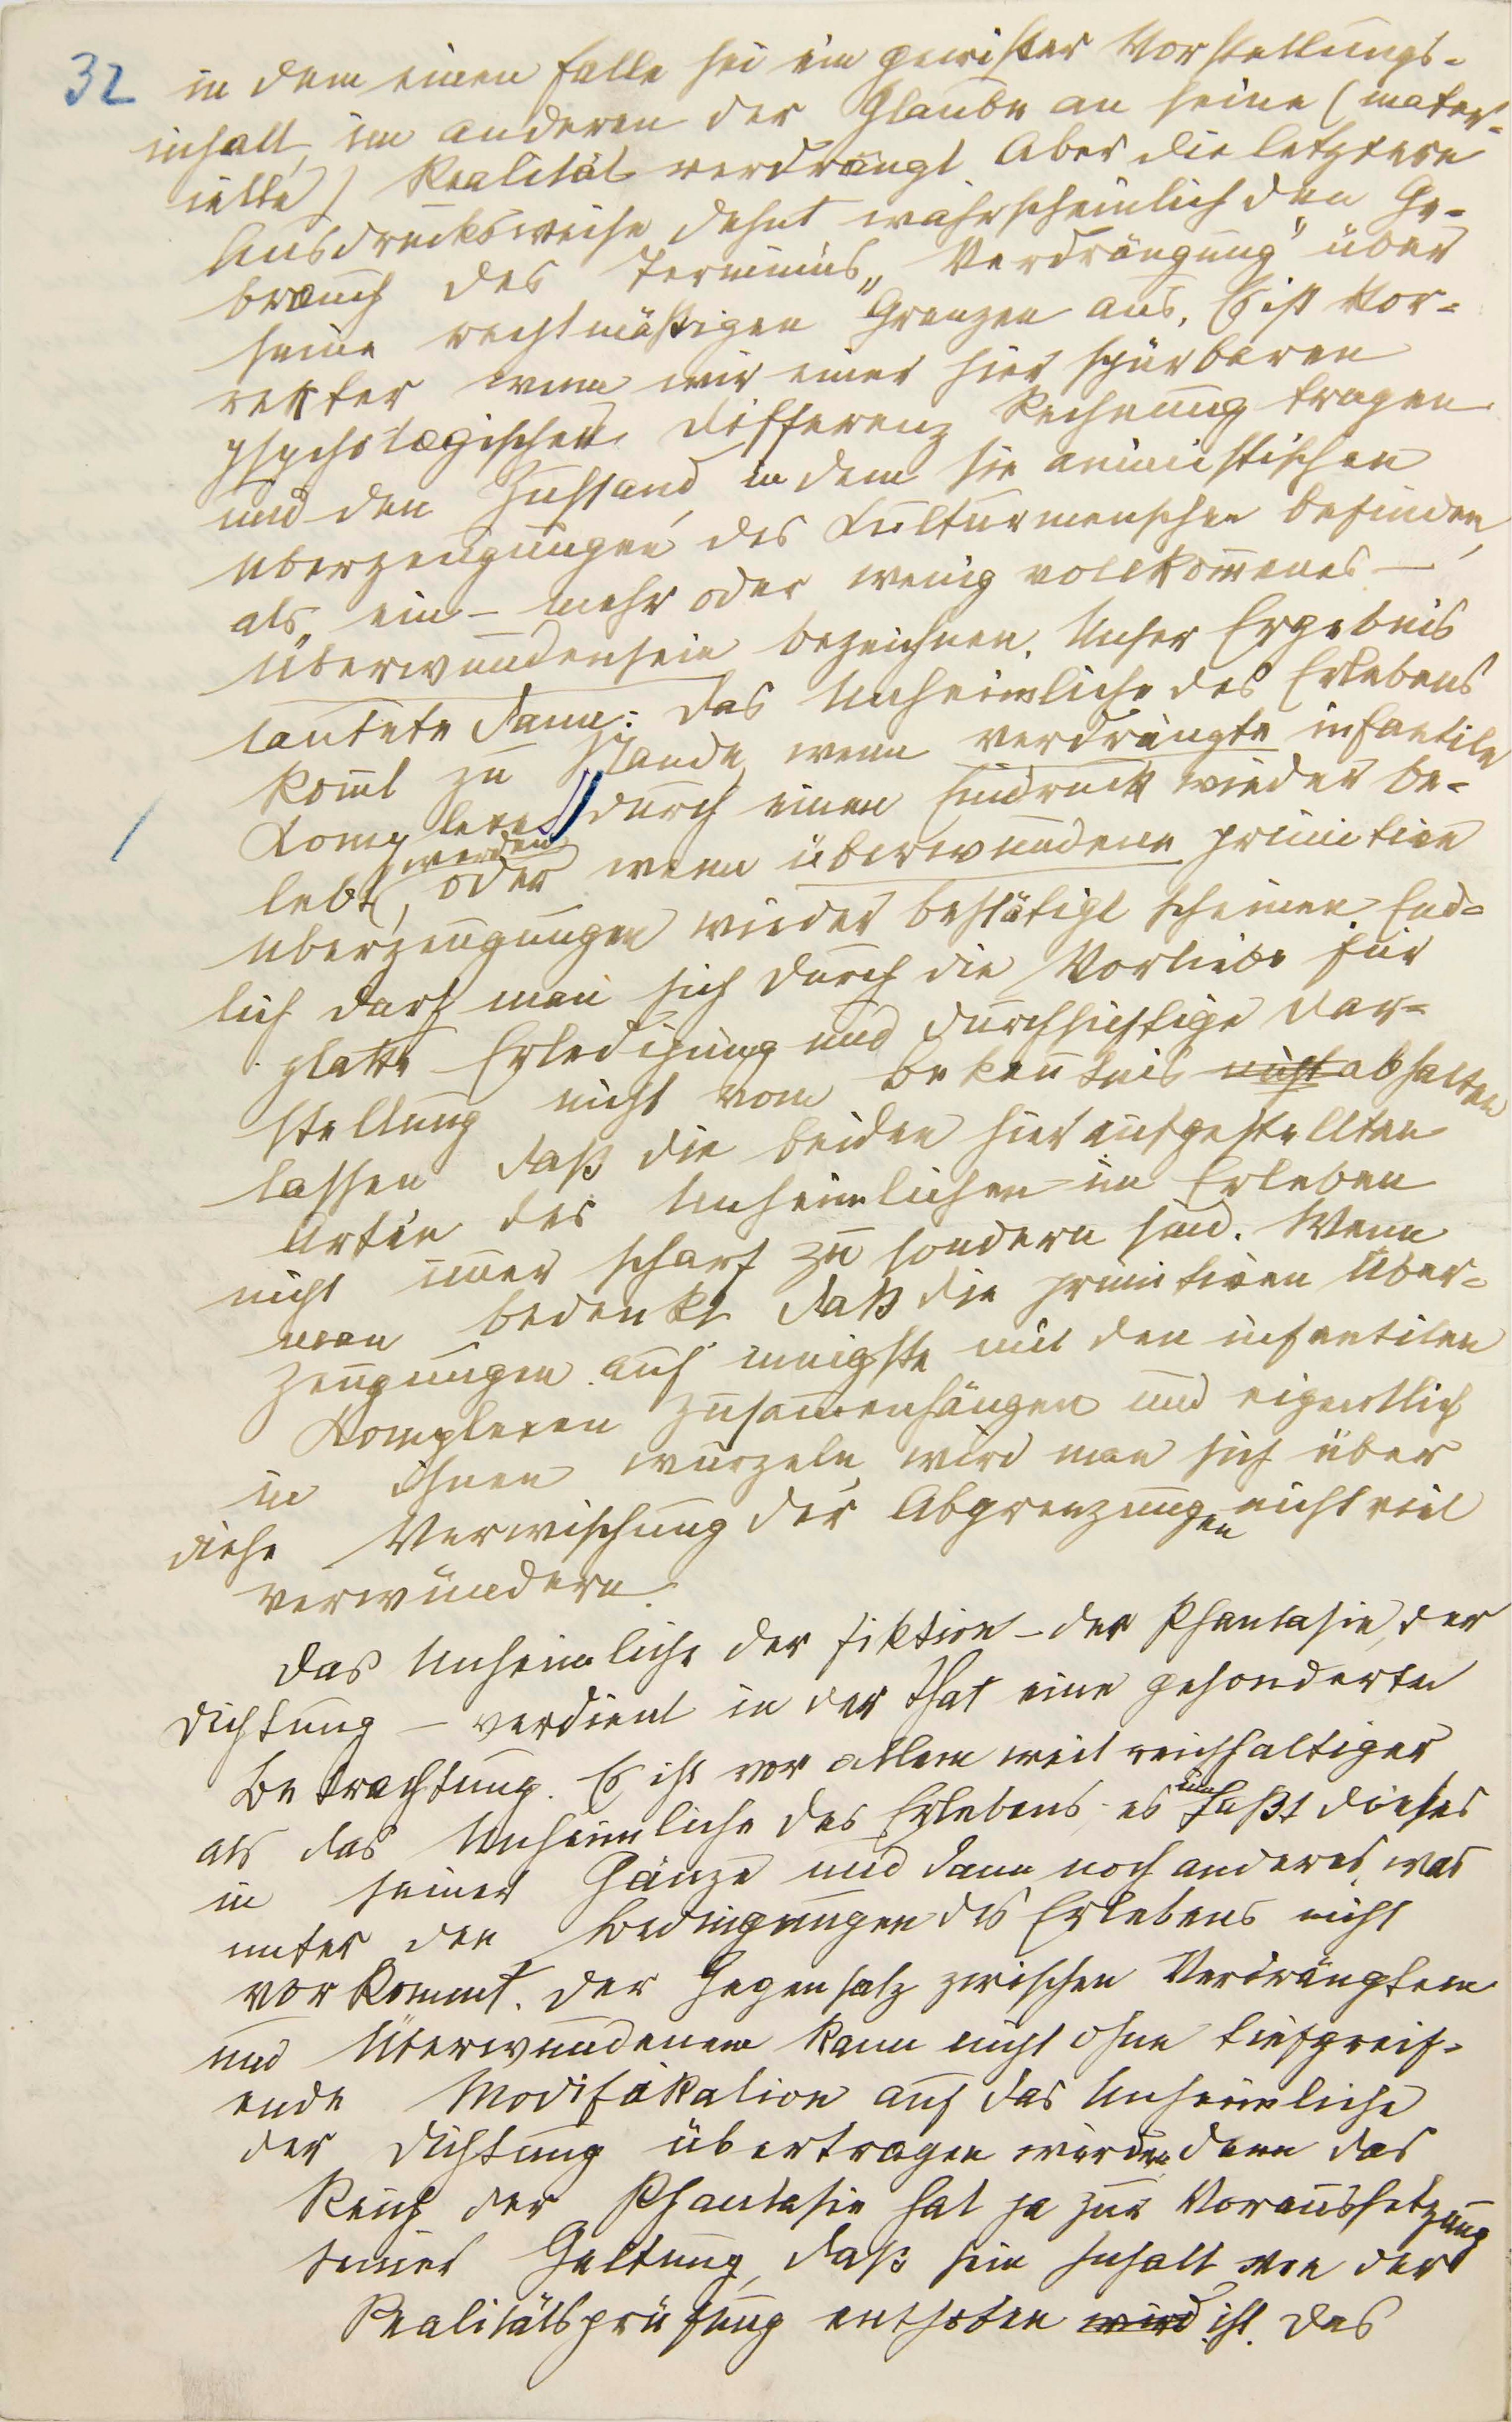 32 in dem einen Falle sei ein gewisser Vorstellungs-
inhalt, im anderen der Glaube an seine (mater-
ielle) Realität verdrängt Aber die letztere
Ausdrucksweise dehnt wahrscheinlich den Ge-
brauch des Terminus „Verdrängung" über
seine rechtmäßigen Grenzen aus. Es ist kor-
rekter wenn wir einer hier spürbaren
psychologischen Differenz Rechnung tragen
und den Zustand, in dem sie animistischen
Überzeugungen des Kulturmenschen befinden,
als „ein – mehr oder wenig vollkom̄enes –
Überwundensein bezeichnen. Unser Ergebnis
lautete dann: Das Unheimliche des Erlebens
kom̄t zu Stande, wenn verdrängte infantile
Komplexe durch einen Eindruck wieder be-
lebt werden, oder wenn überwundene primitive
Überzeugungen wieder bestätigt scheinen. End-
lich darf man sich durch die Vorliebe für
glatte Erledigung und durchsichtige Dar-
stellung nicht vom Beken̄tnis nicht abhalten
lassen daß die beiden hier aufgestellten
Arten des Unheimlichen im Erleben
nicht im̄er scharf zu sondern sind. Wenn
man bedenkt daß die primitiven Über-
zeugungen auf innigste mit den infantilen
Komplexen zusam̄enhängen und eigentlich
in ihnen wurzeln, wird man sich über
diese Verwischung der Abgrenzungen nicht viel
verwundern.
Das Unheimliche der Fiktion – der Phantasie, der
Dichtung – verdient in der That eine gesonderte
Betrachtung. Es ist vor allem weit reichhaltiger
als das Unheimliche des Erlebens, es umfaßt dieses
in seiner Gänze und dann noch anderes, was
unter den Bedingungen des Erlebens nicht
vorkommt. Der Gegensatz zwischen Verdrängtem
und Überwundenem kann nicht ohne tiefgreif-
ende Modifikation auf das Unheimliche
der Dichtung übertragen werden, denn das
Reich der Phantasie hat ja zur Voraussetzung
seiner Geltung, daß sein Inhalt von der
Realitätsprüfung enthoben wird ist. Das